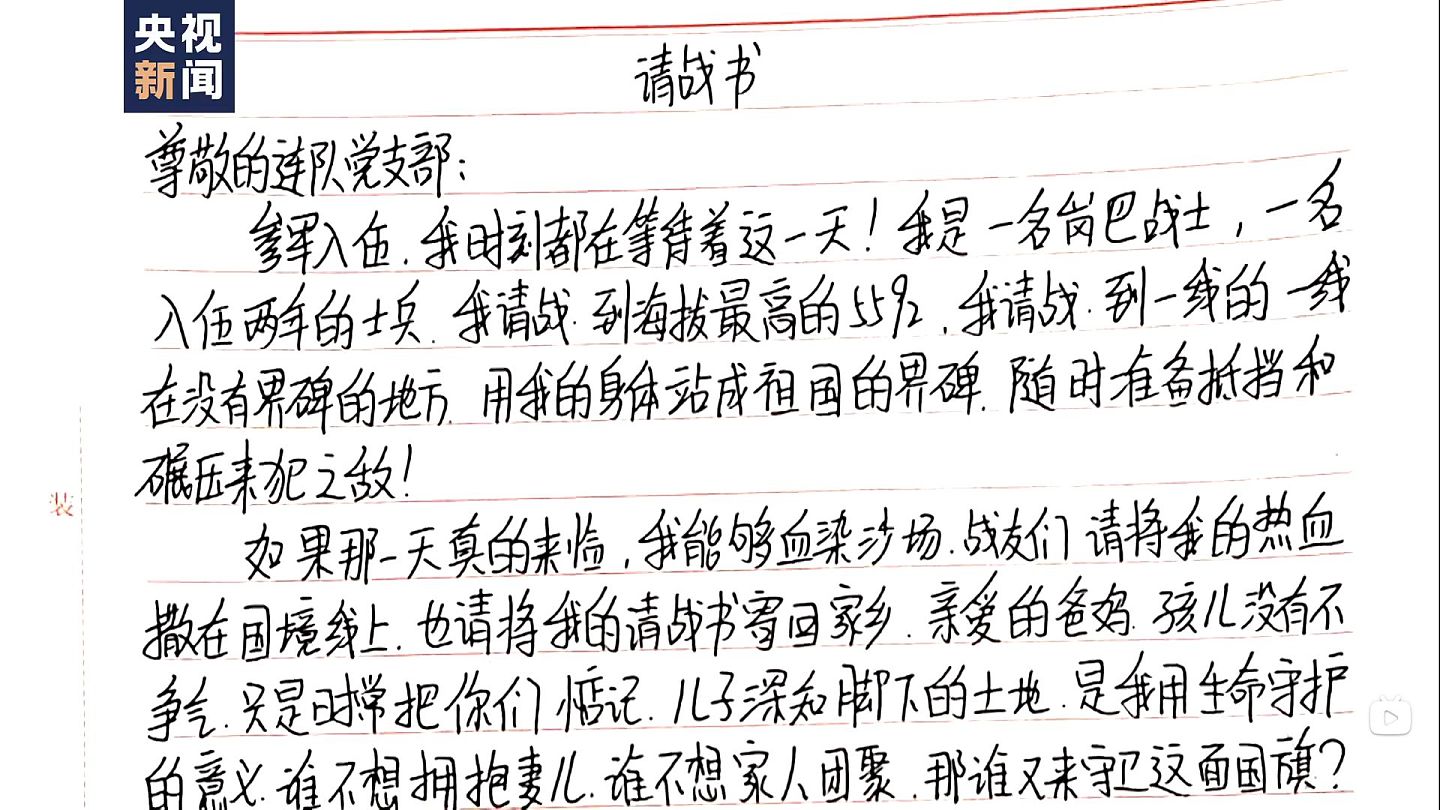 央视
新闻
请战书
尊敬的连队党支部：
参军入伍，我时刻都在等待着这一天！我是一名岗巴战士，一名
入伍两年的士兵。我请战，到海拔最高的5592，我请战，到一线的一线
在没有界碑的地方，用我的身体站成祖国的界碑，随时准备抵挡和
碾压来犯之敌！
如果那一天真的来临，我能够血染沙场，战友们请将我的热血
撒在国境线上，也请将我的请战书寄回家乡，亲爱的爸妈，孩儿没有不
争气，只是时常把你们惦记，儿子深知脚下的土地，是我用生命守护
的意义，谁不想拥抱妻儿，谁不想家人团聚，那谁又来守卫这面国旗？
装